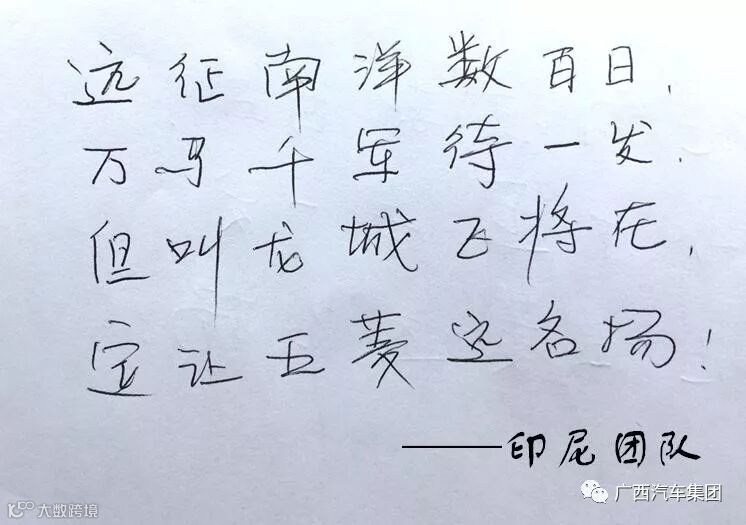 远征南洋数百日，
万马千军待一发．
但叫龙城飞将在，
定让五菱远名扬！
——印尼团队
大数跨境
广西汽车集团